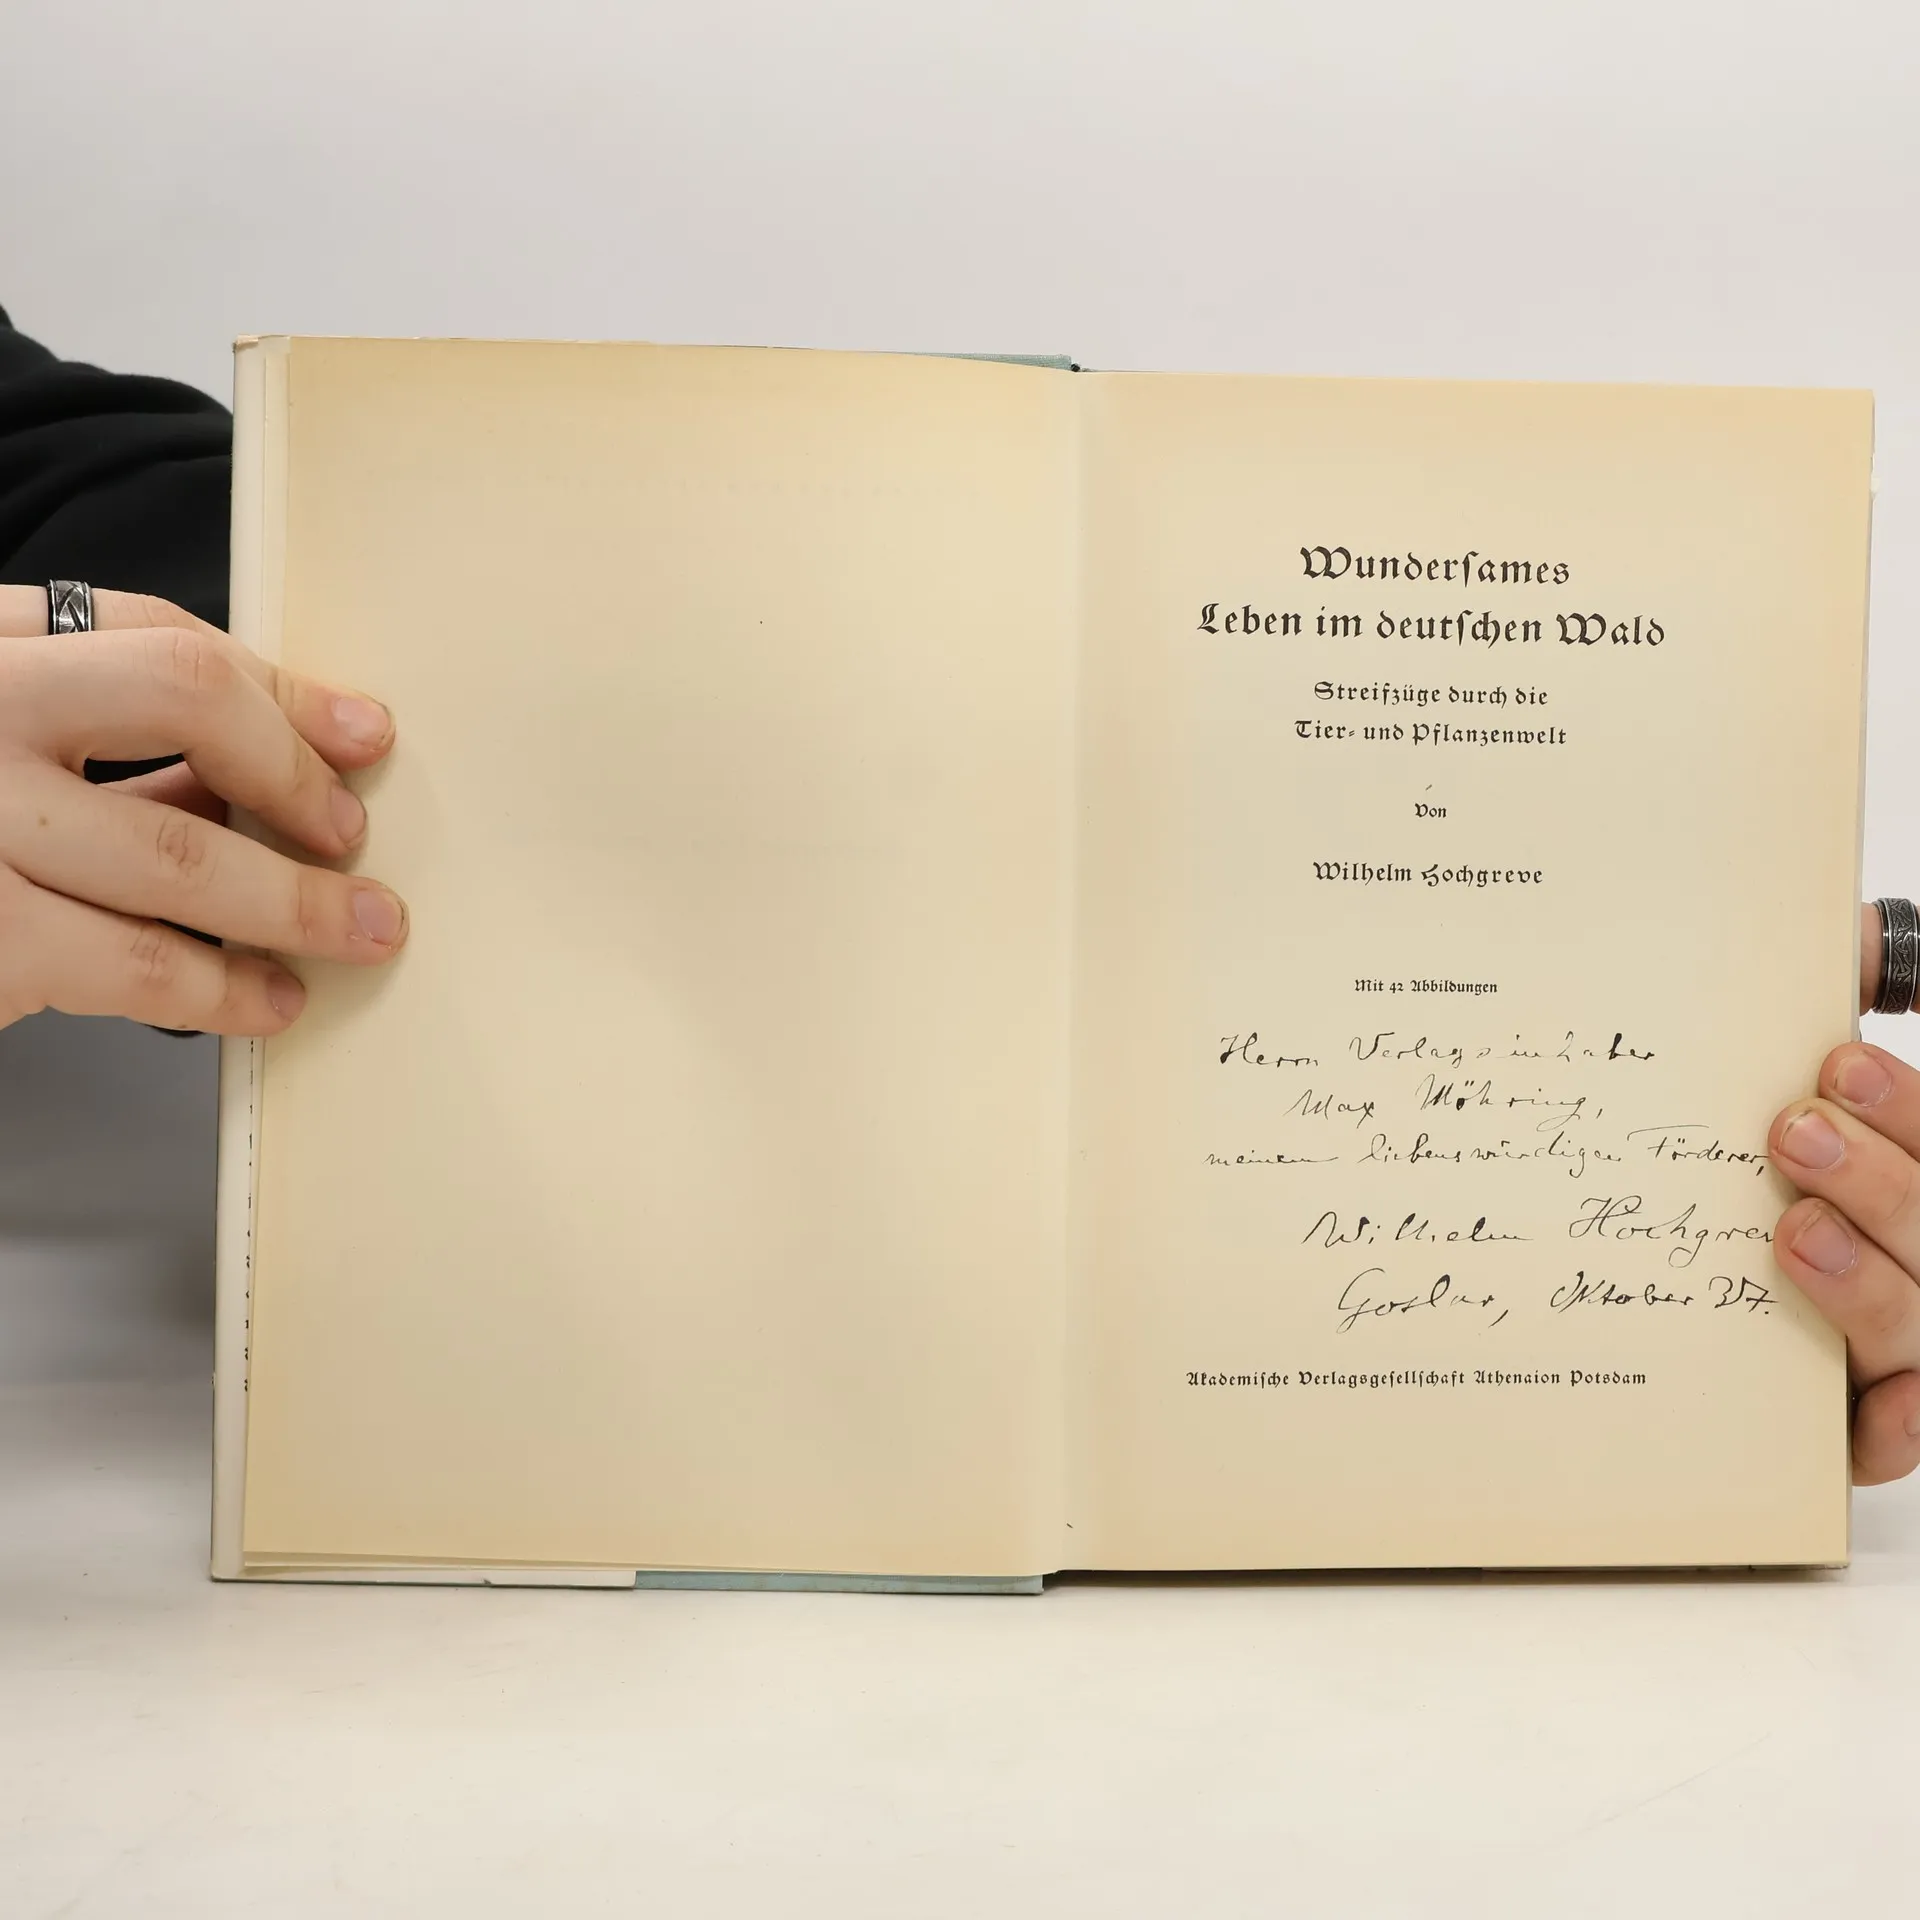 Wunderſames
Leben im deutſchen Wald
Streifzüge durch die
Tier- und Pflanzenwelt
Von
Wilhelm Hochgreve
Mit 42 Abbildungen
Herrn Verlagsinhaber
Max Möhring,
meinem liebenswürdigen Förderer,
Wilhelm Hochgrev
Goslar, Oktober 37.
Akademiſche Verlagsgeſellſchaft Athenaion Potsdam